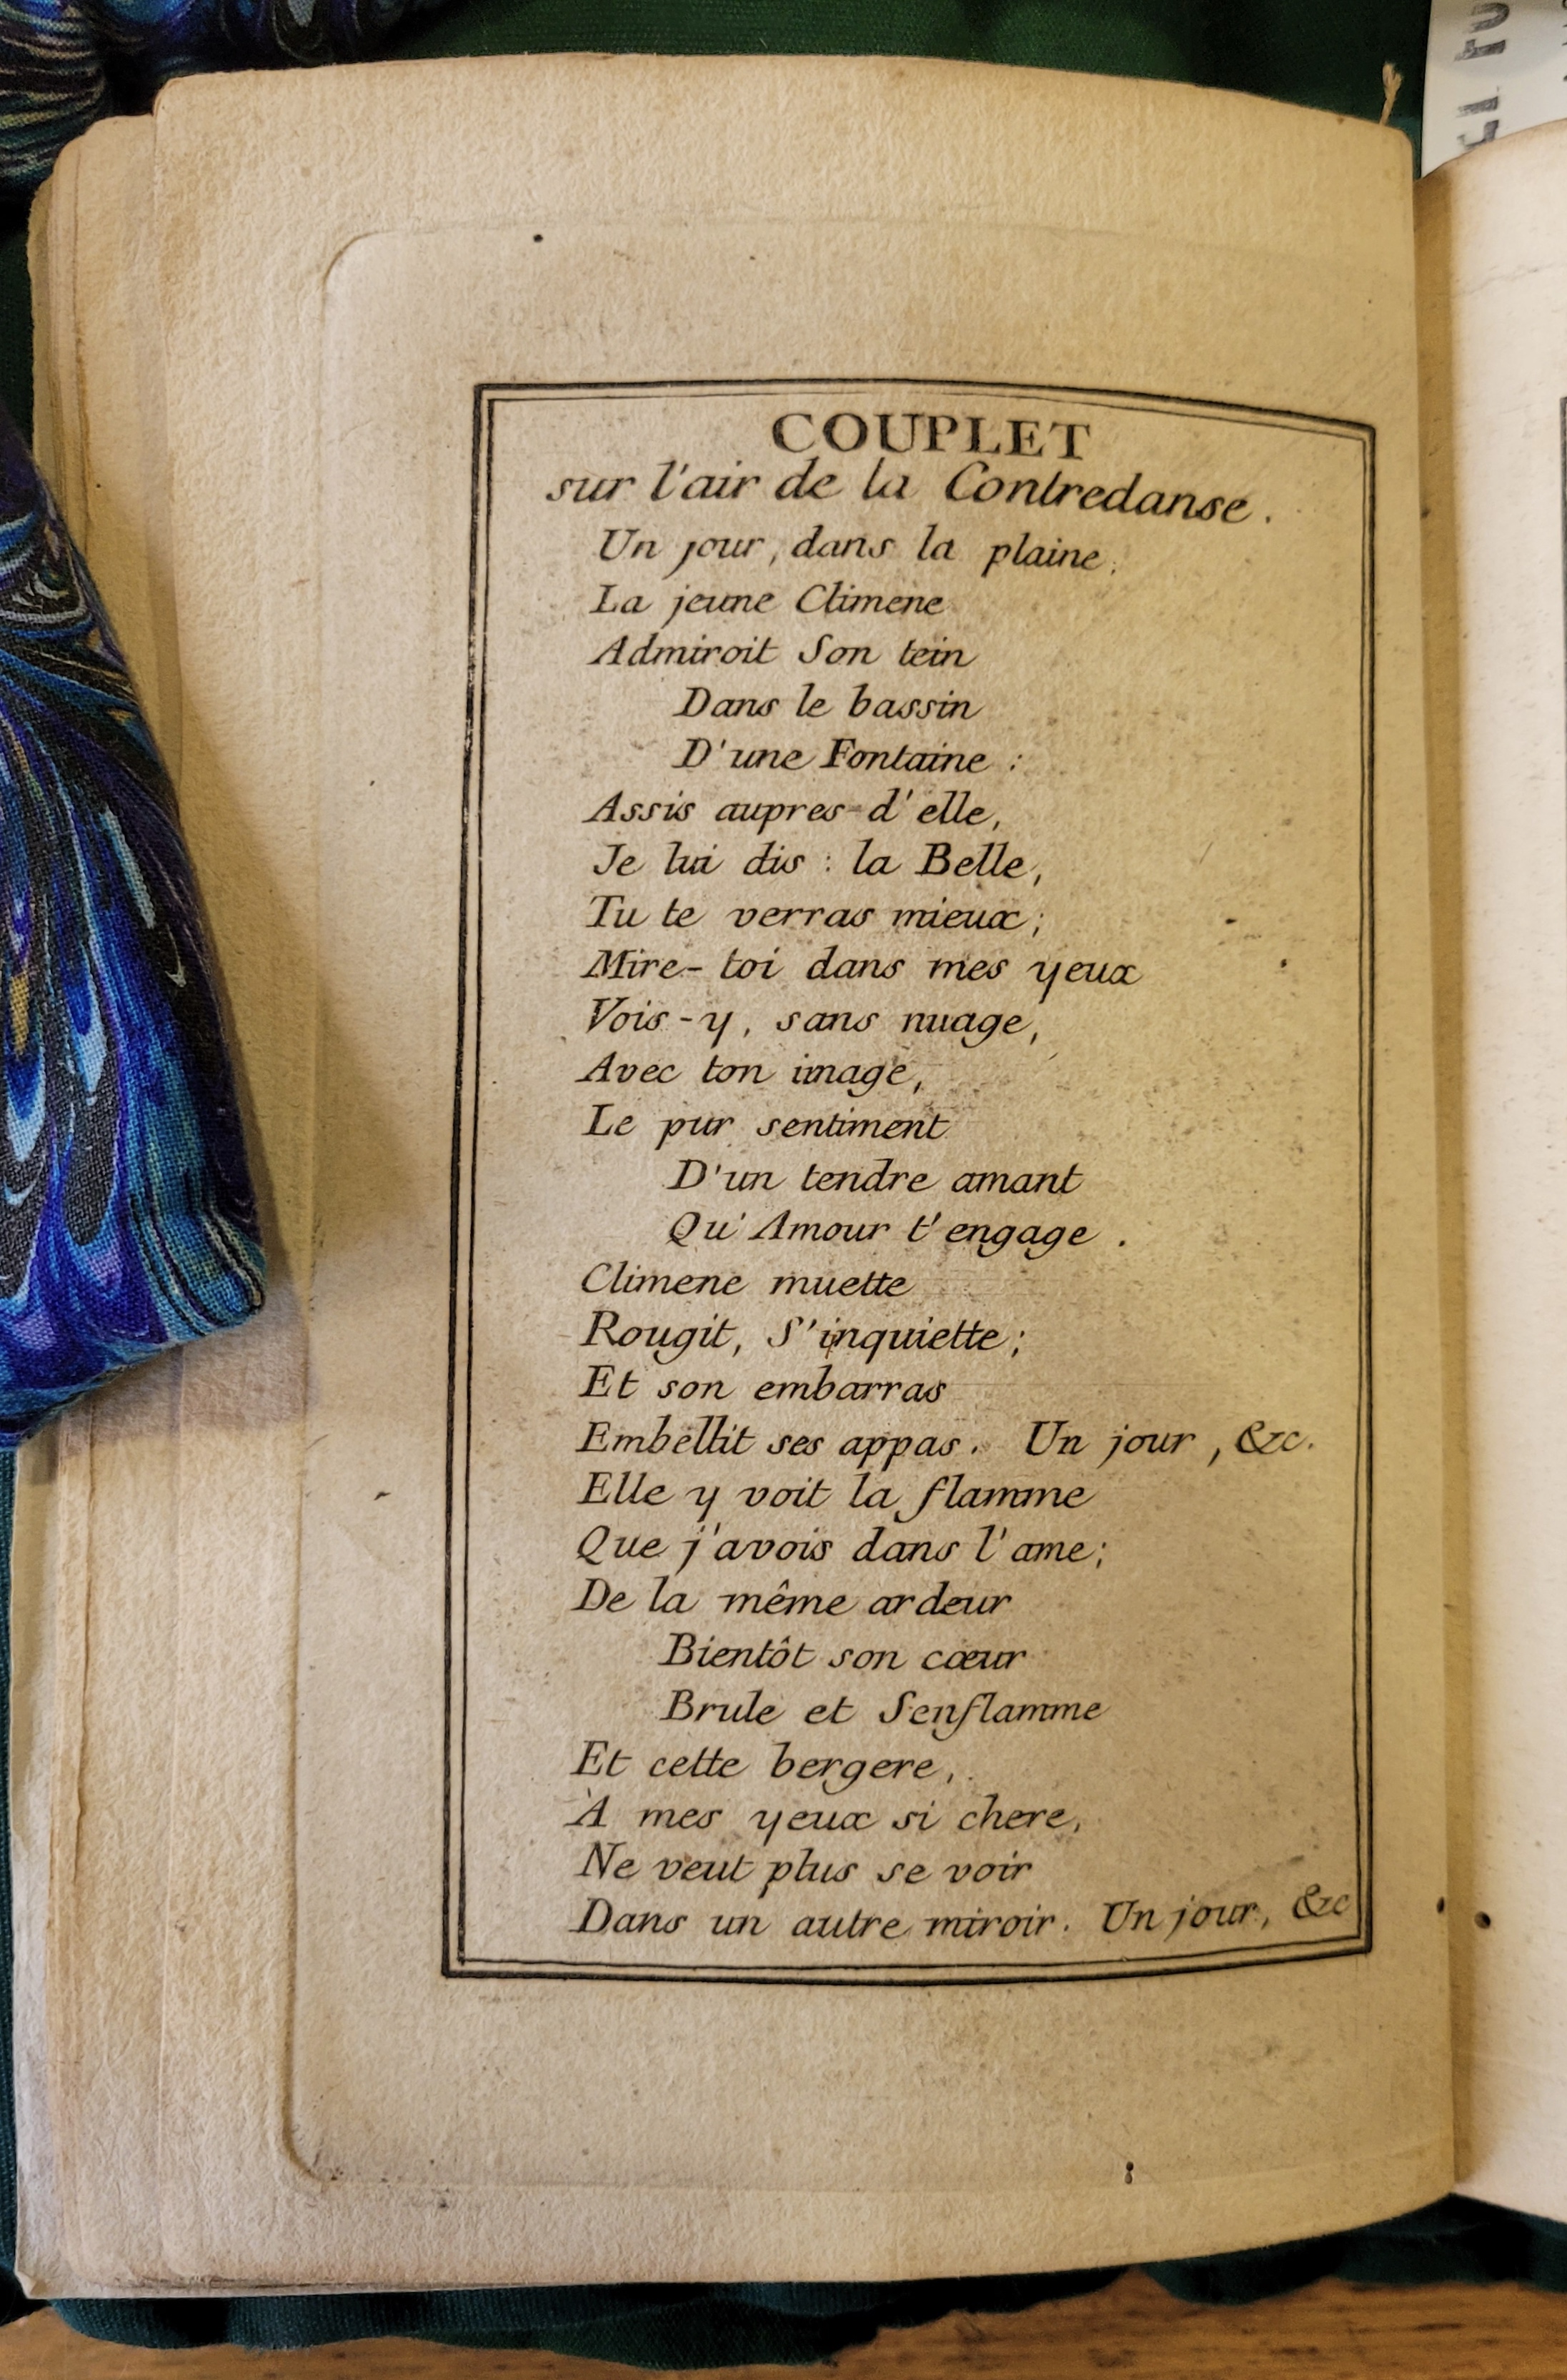 COUPLET
sur l'air de la Contredanse.
Un jour, dans la plaine,
La jeune Climene
Admiroit Son tein
Dans le bassin
D'une Fontaine :
Assis aupres-d'elle,
Je lui dis : la Belle,
Tu te verras mieux ;
Mire-toi dans mes yeux
Vois-y, sans nuage,
Avec ton image,
Le pur sentiment
D'un tendre amant
Qu'Amour t'engage .
Climene muette
Rougit, S'inquiette ;
Et son embarras
Embellit ses appas. Un jour, &c.
Elle y voit la flamme
Que j'avois dans l'ame ;
De la même ardeur
Bientôt son cœur
Brule et S'enflamme
Et cette bergere,
A mes yeux si chere,
Ne veut plus se voir
Dans un autre miroir. Un jour, &c